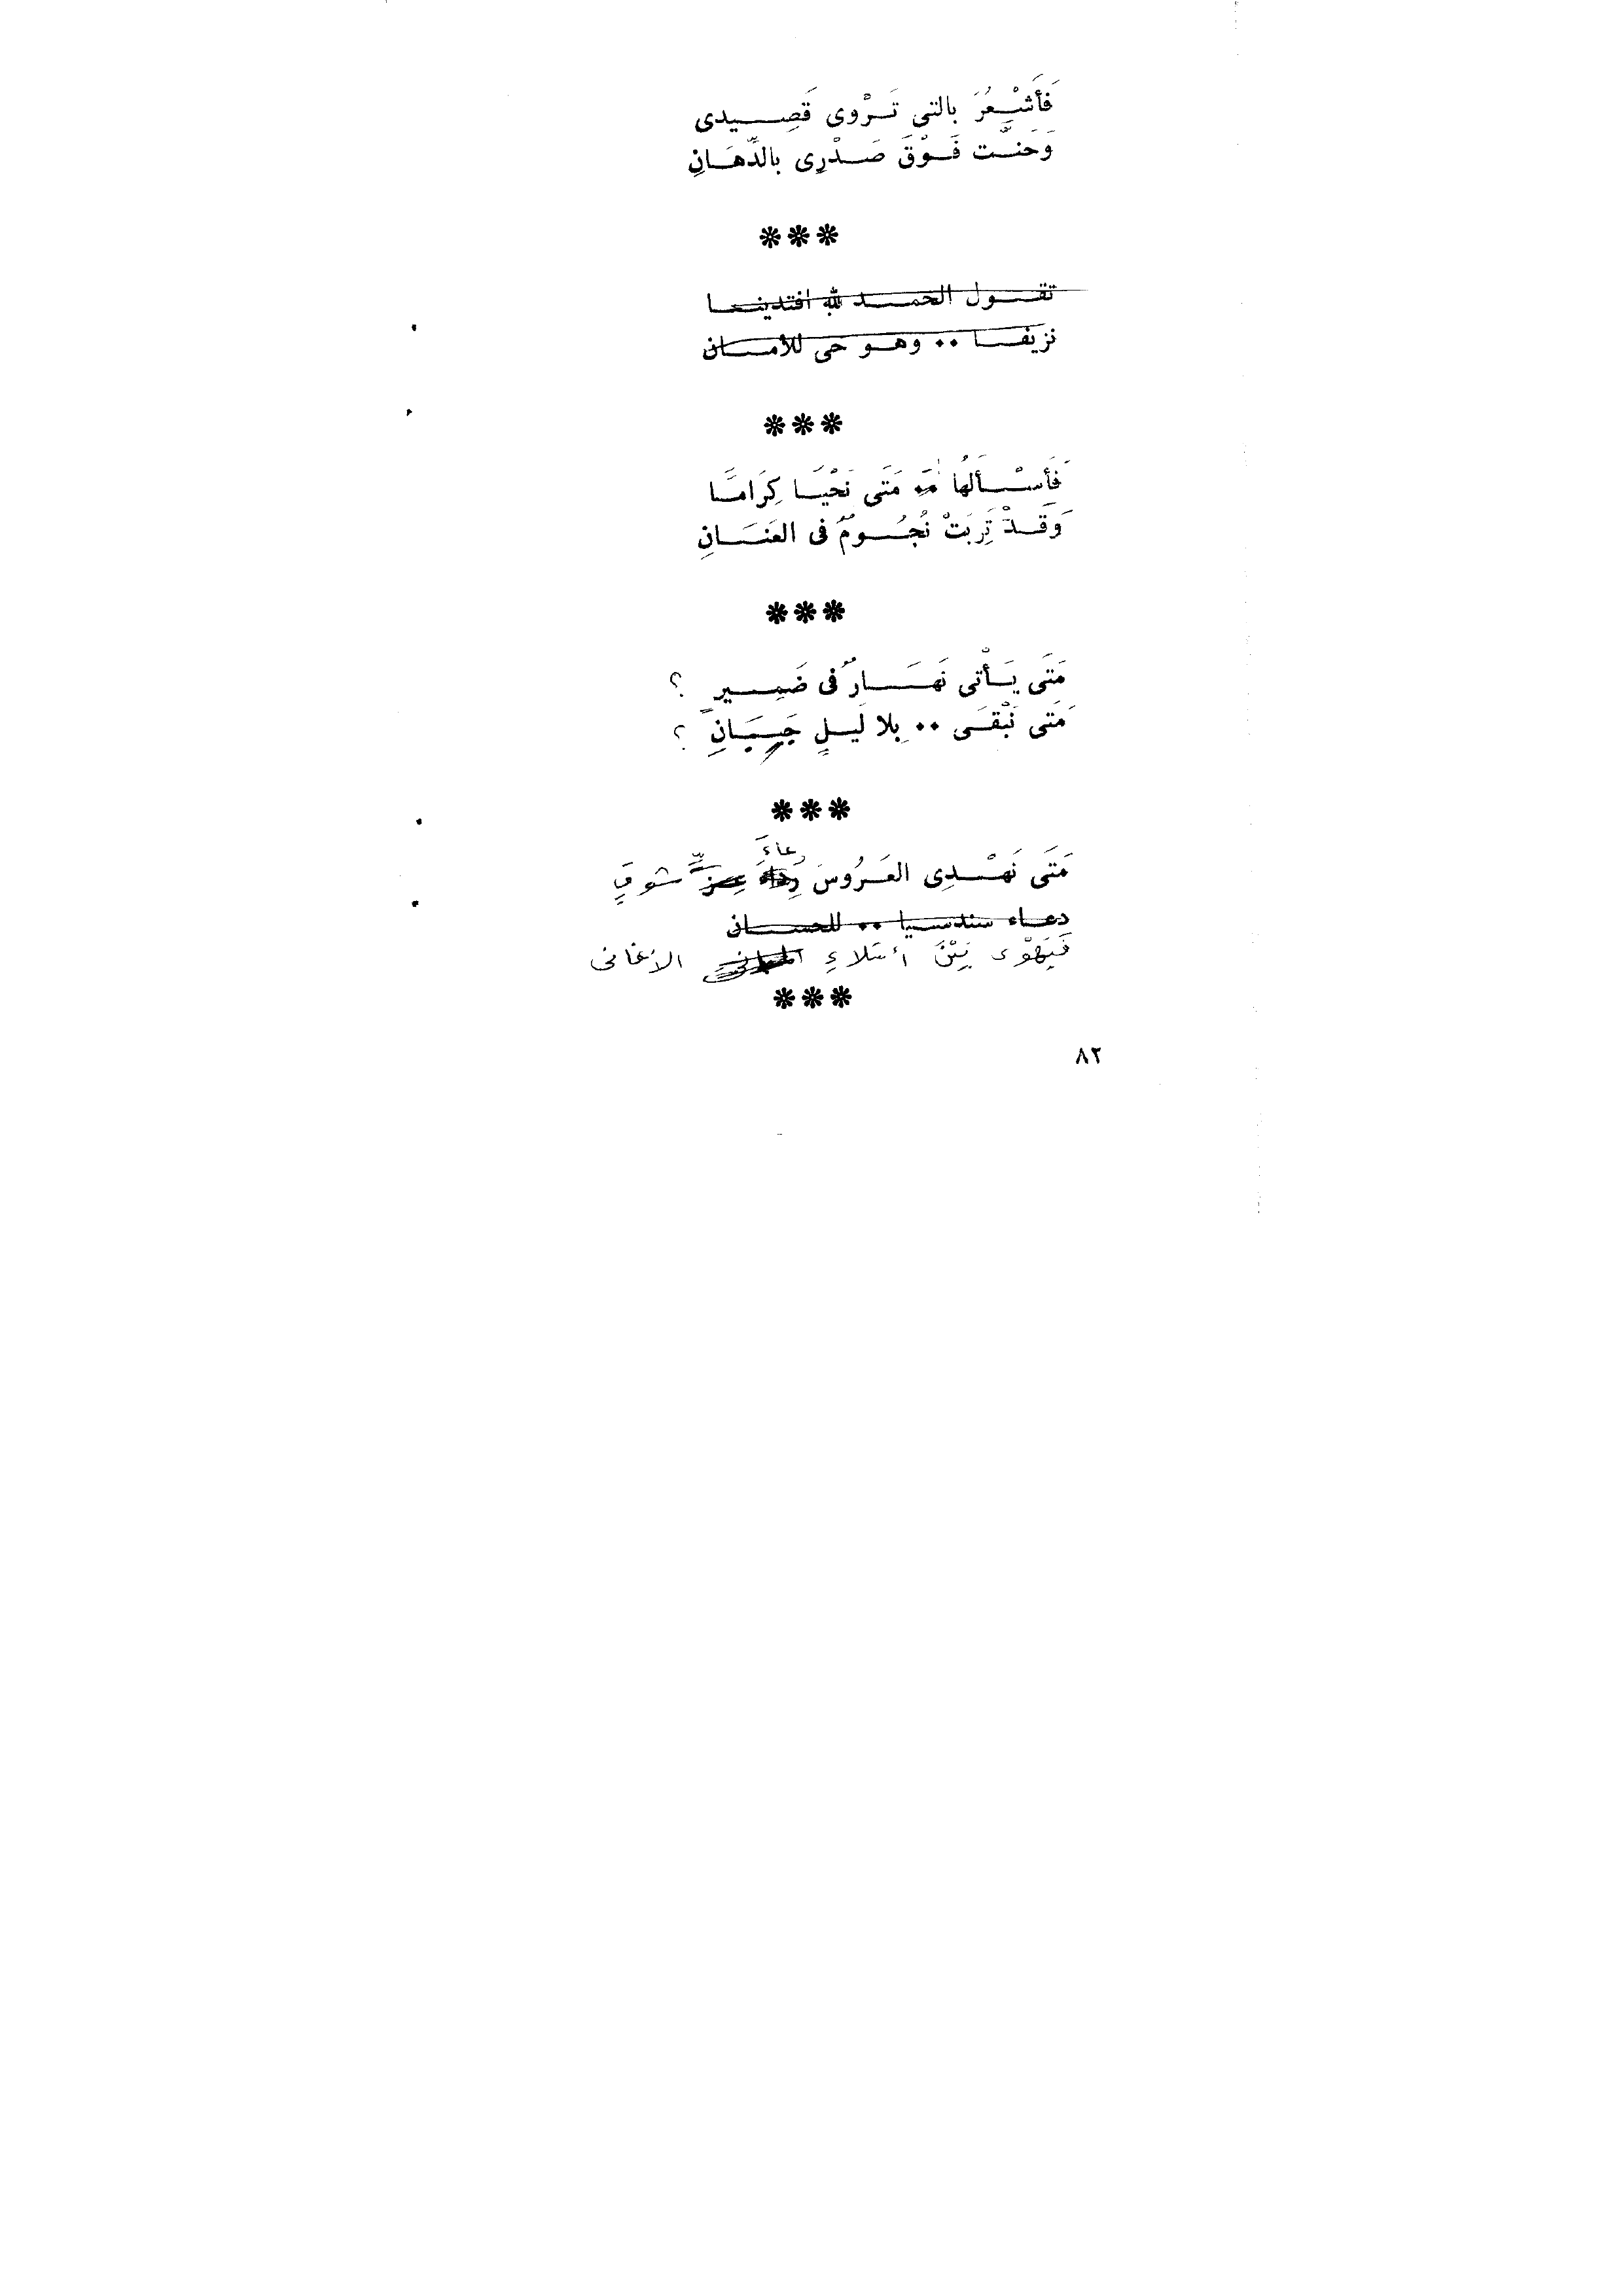 فَأَشْعُرَ بالتى تَرْوى قَصِيدى
وَحَنَّت فَوْقَ صَدْرِى بالدِّهَانِ
***
تقول الحمد لله افتدينا
نزيفا .. وهو حى للأمان
***
فَأَسْأَلُهَا .. مَتَى نَحْيَا كِرَامًا
وَقَدْ تَرِبَتْ نُجُومٌ فى العَنَانِ
***
مَتَى يَأْتى نَهَارٌ فى ضَمِيرٍ ؟
مَتَى نَبْقَى .. بِلا لَيلٍ جَبَانِ ؟
***
عاءَ
مَتَى نَهْدِى العَرُوسَ عِزٍّ شوقٍ
دعاء سندسيا .. للحسان
فَيَهْوى بَيْنَ أشلاءِ الأغانى
***
٨٢